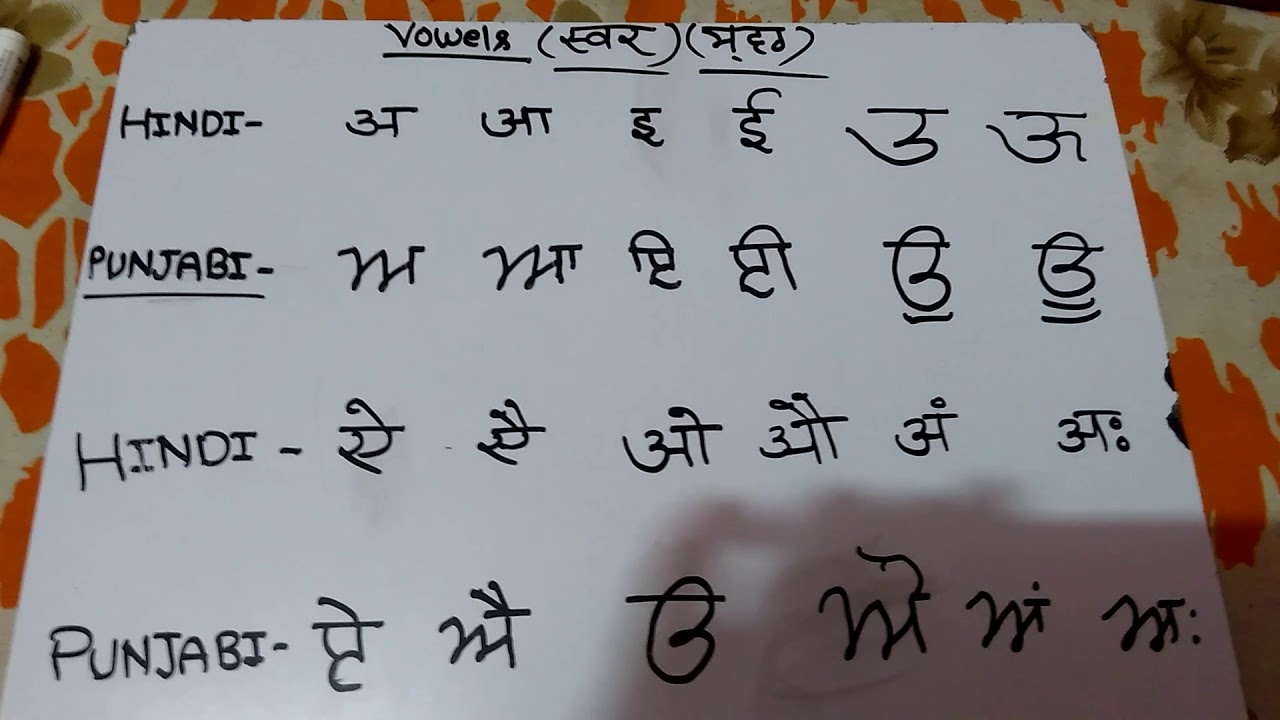 Vowels (स्वर) (ਸ੍ਵਰ)
HINDI- अ आ इ ई उ ऊ
PUNJABI- ਅ ਆ ਇ ਈ ਉ ਊ
HINDI - ऐ एै ओ औ अं अः
PUNJABI- ਏ ਐ ਓ ਔ ਅਂ ਅਃ